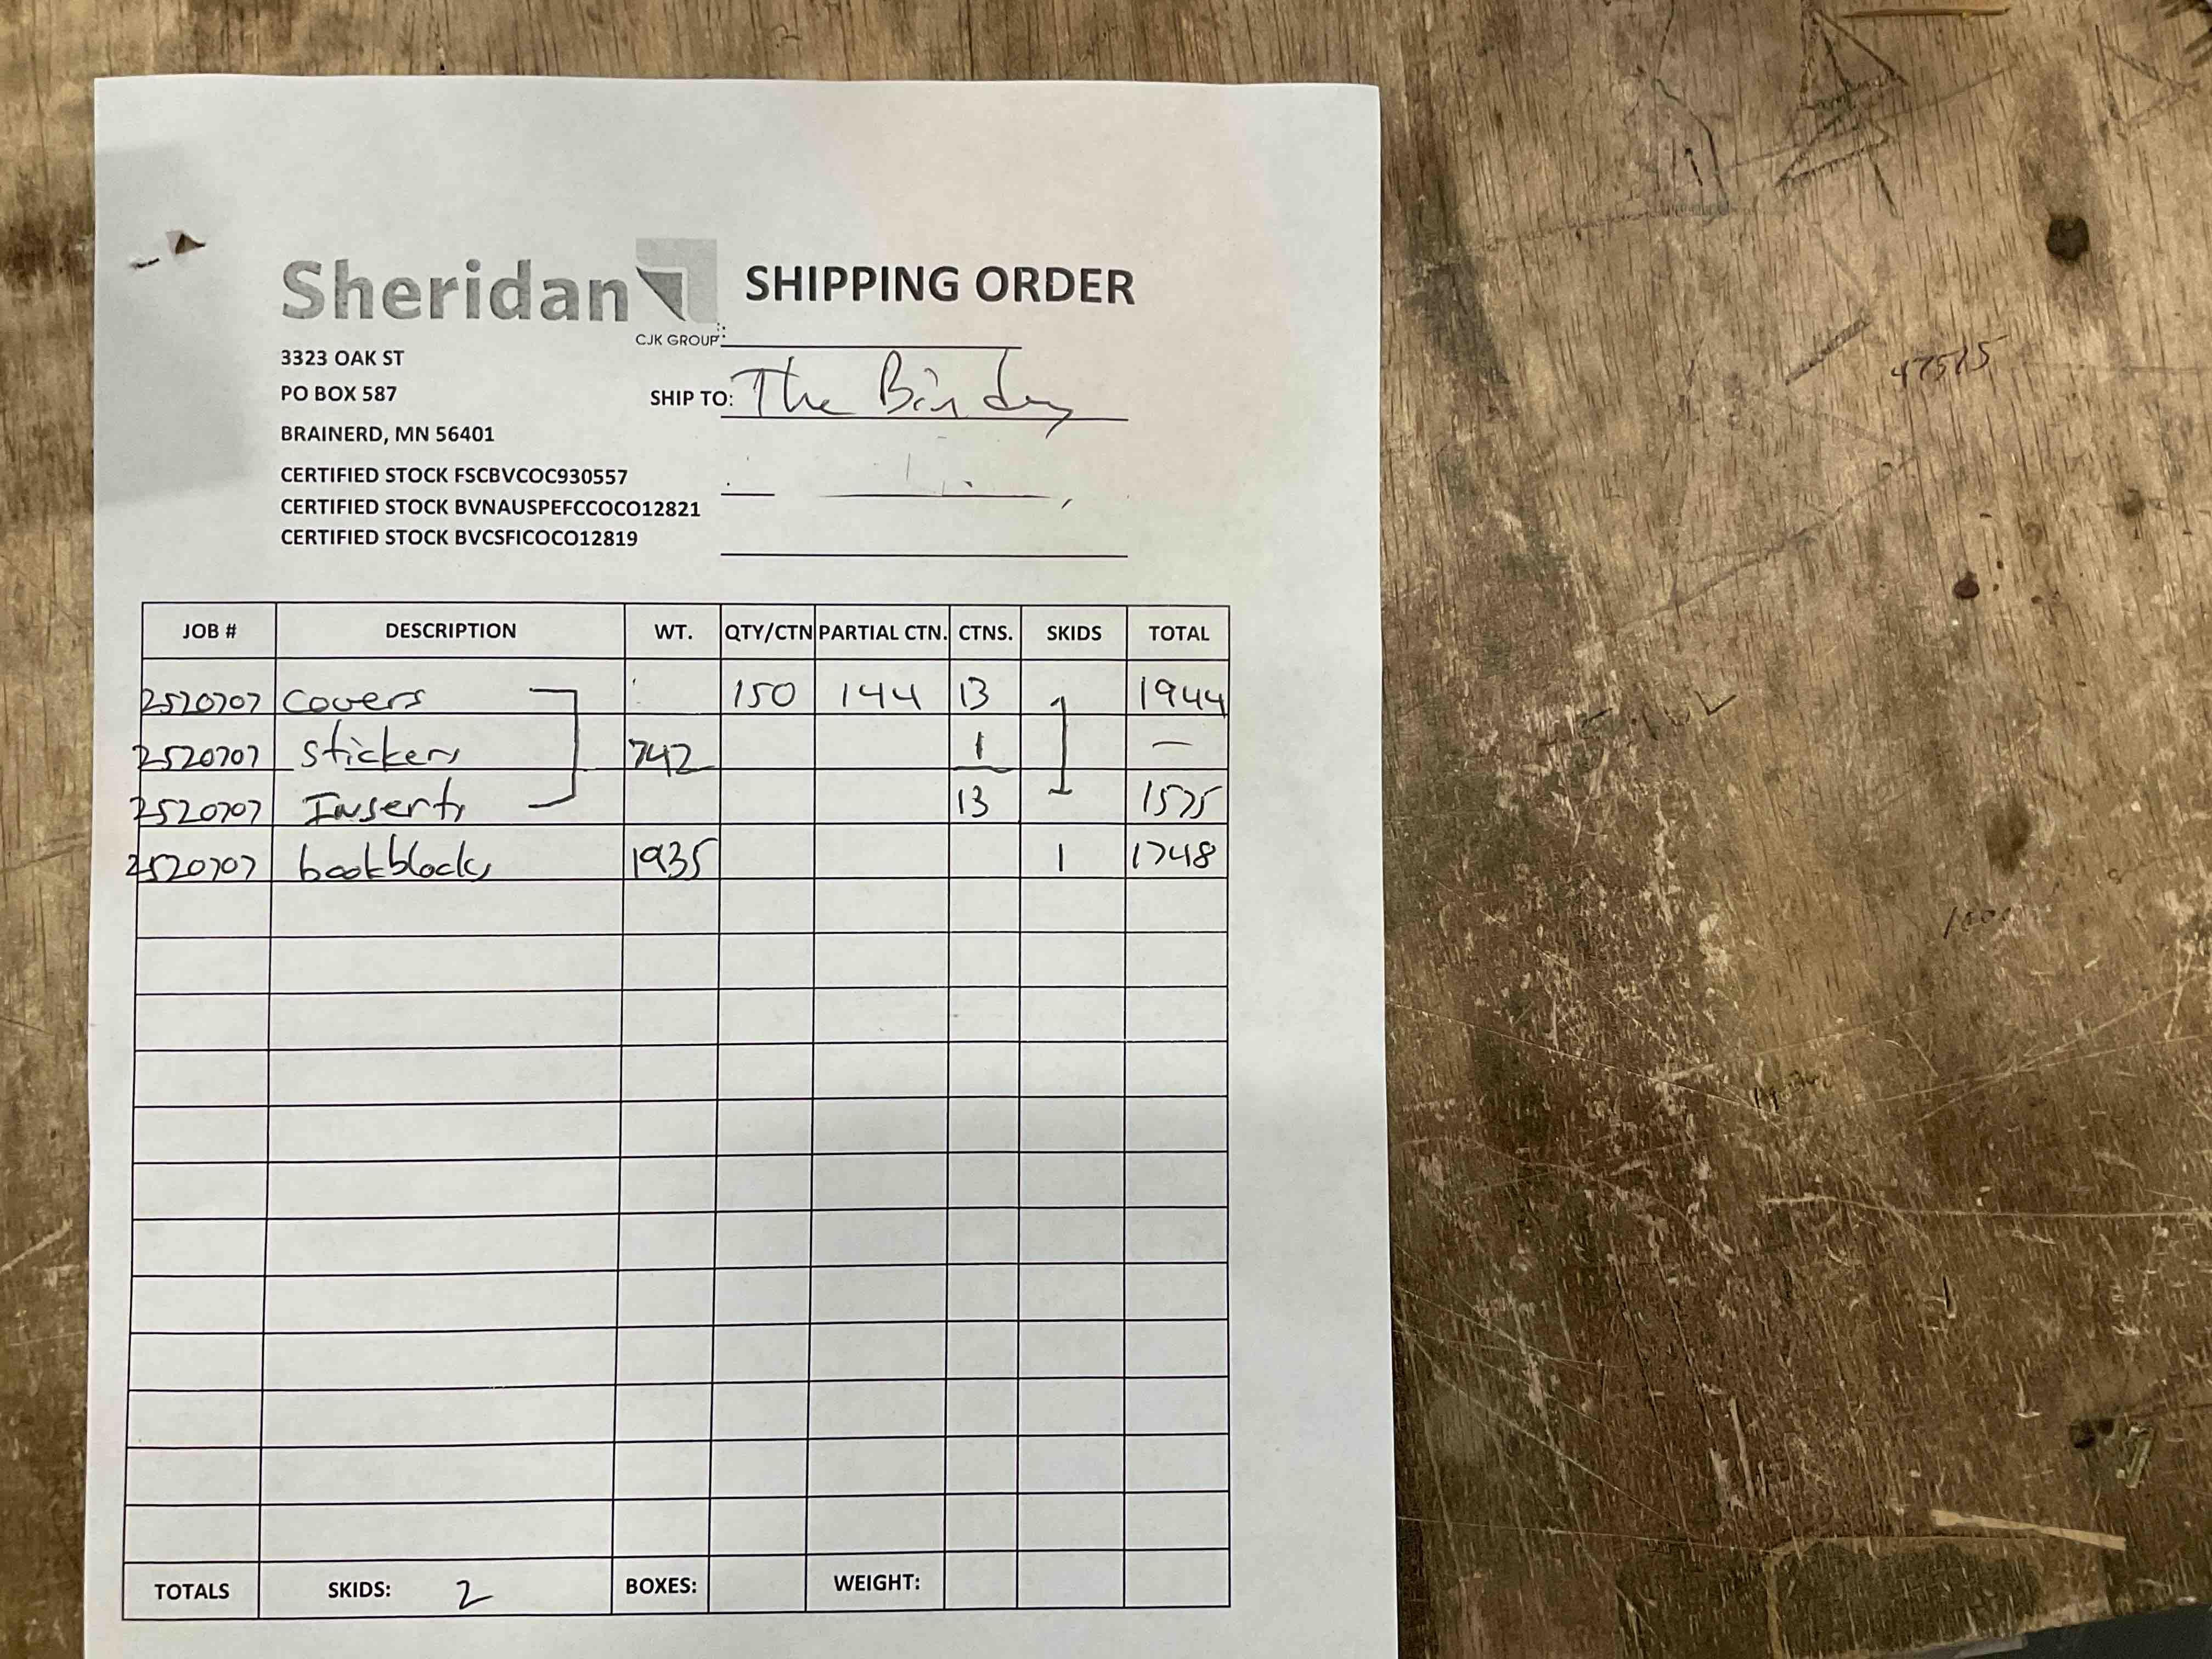 Sheridan
CJK GROUP
SHIPPING ORDER
3323 OAK ST
PO BOX 587
BRAINERD, MN 56401
SHIP TO: The Bindery
CERTIFIED STOCK FSCBVCOC930557
CERTIFIED STOCK BVNAUSPEFCCOCO12821
CERTIFIED STOCK BVCSFICOCO12819
JOB # DESCRIPTION WT. QTY/CTN PARTIAL CTN. CTNS. SKIDS TOTAL
2520707 covers 150 144 13 1944
2520707 stickers 742 1 —
2520707 Inserts 13 1575
2520707 bookblocks 1935 1 1748
TOTALS SKIDS: 2 BOXES: WEIGHT:
47515